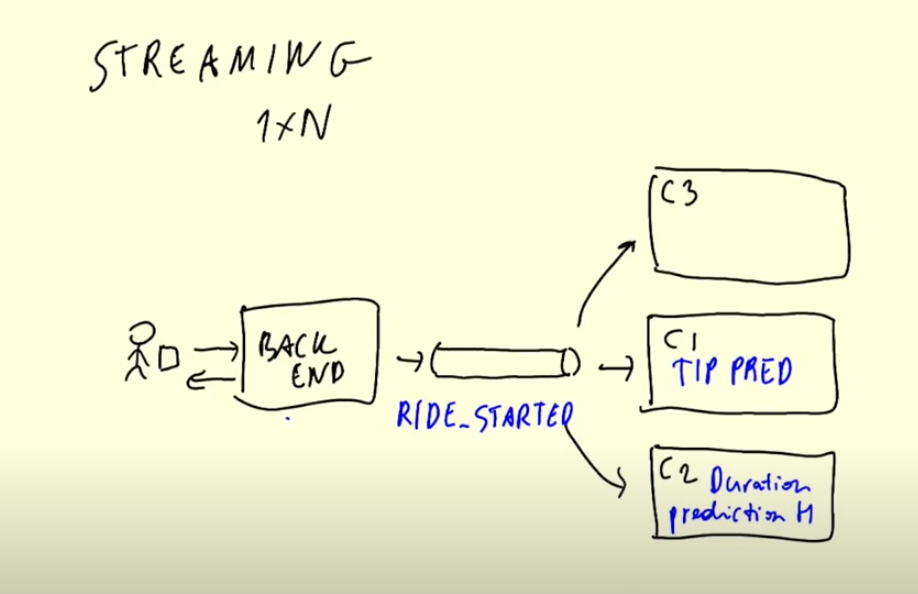 STREAMING
1xN
C3
BACK
END
RIDE_STARTED
C1
TIP PRED
C2 Duration
prediction M